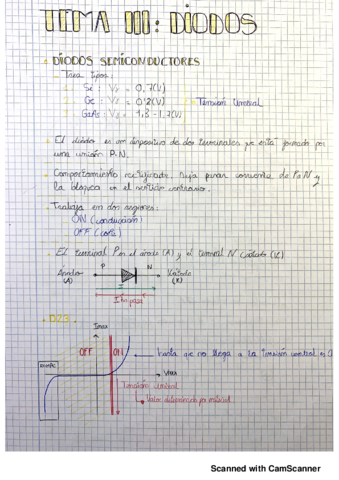 TEMA III: DIODOS
. DIODOS SEMICONDUCTORES
- Tres tipos:
Si: Vγ = 0,7(V)
Ge: Vγ = 0'2(V) Tensión Umbral
GaAs: Vγ = 1'3 - 1.7(V)
- El diodo es un dispositivo de dos terminales que está formado por
una unión P-N.
- Comportamiento rectificador, deja pasar corriente de P a N y
la bloquea en el sentido contrario.
- Trabaja en dos regiones:
ON (conducción)
OFF (corte)
- El terminal P es el ánodo (A) y el terminal N cátodo (K)
P N
Ánodo Kátodo
(A) (K)
I
I no pasa
. D23.
OFF ON hasta que no llega a la tensión umbral es 0
Tensión Umbral
Valor determinado por material
Scanned with CamScanner